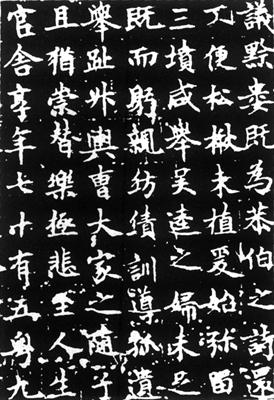 議黔婁既為恭伯之詩還
便松檟未植爰始弥留
三墳咸舉吳逵之婦未足
既而躬親紡績訓導孤遺
舉趾升輿曹大家之隨子
且猶崇替樂極悲至人生
官舍享年七十有五粵九